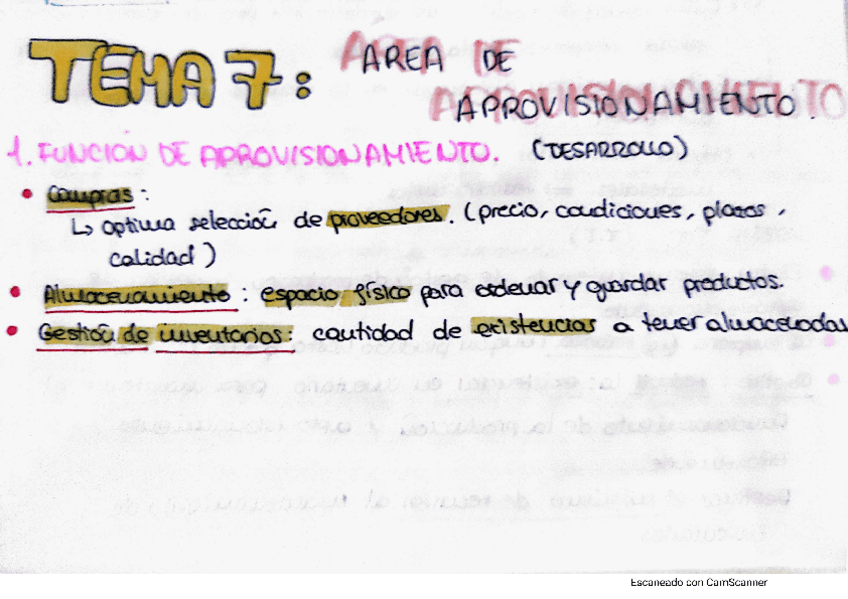 TEMA 7: AREA DE
APROVISIONAMIENTO.
1. FUNCIÓN DE APROVISIONAMIENTO. (DESARROLLO)
• Compras:
↳ optima selección de proveedores. (precio, condiciones, plazos,
calidad)
• Almacenamiento: espacio físico para ordenar y guardar productos.
• Gestión de inventarios: cantidad de existencias a tener almacenadas
Escaneado con CamScanner